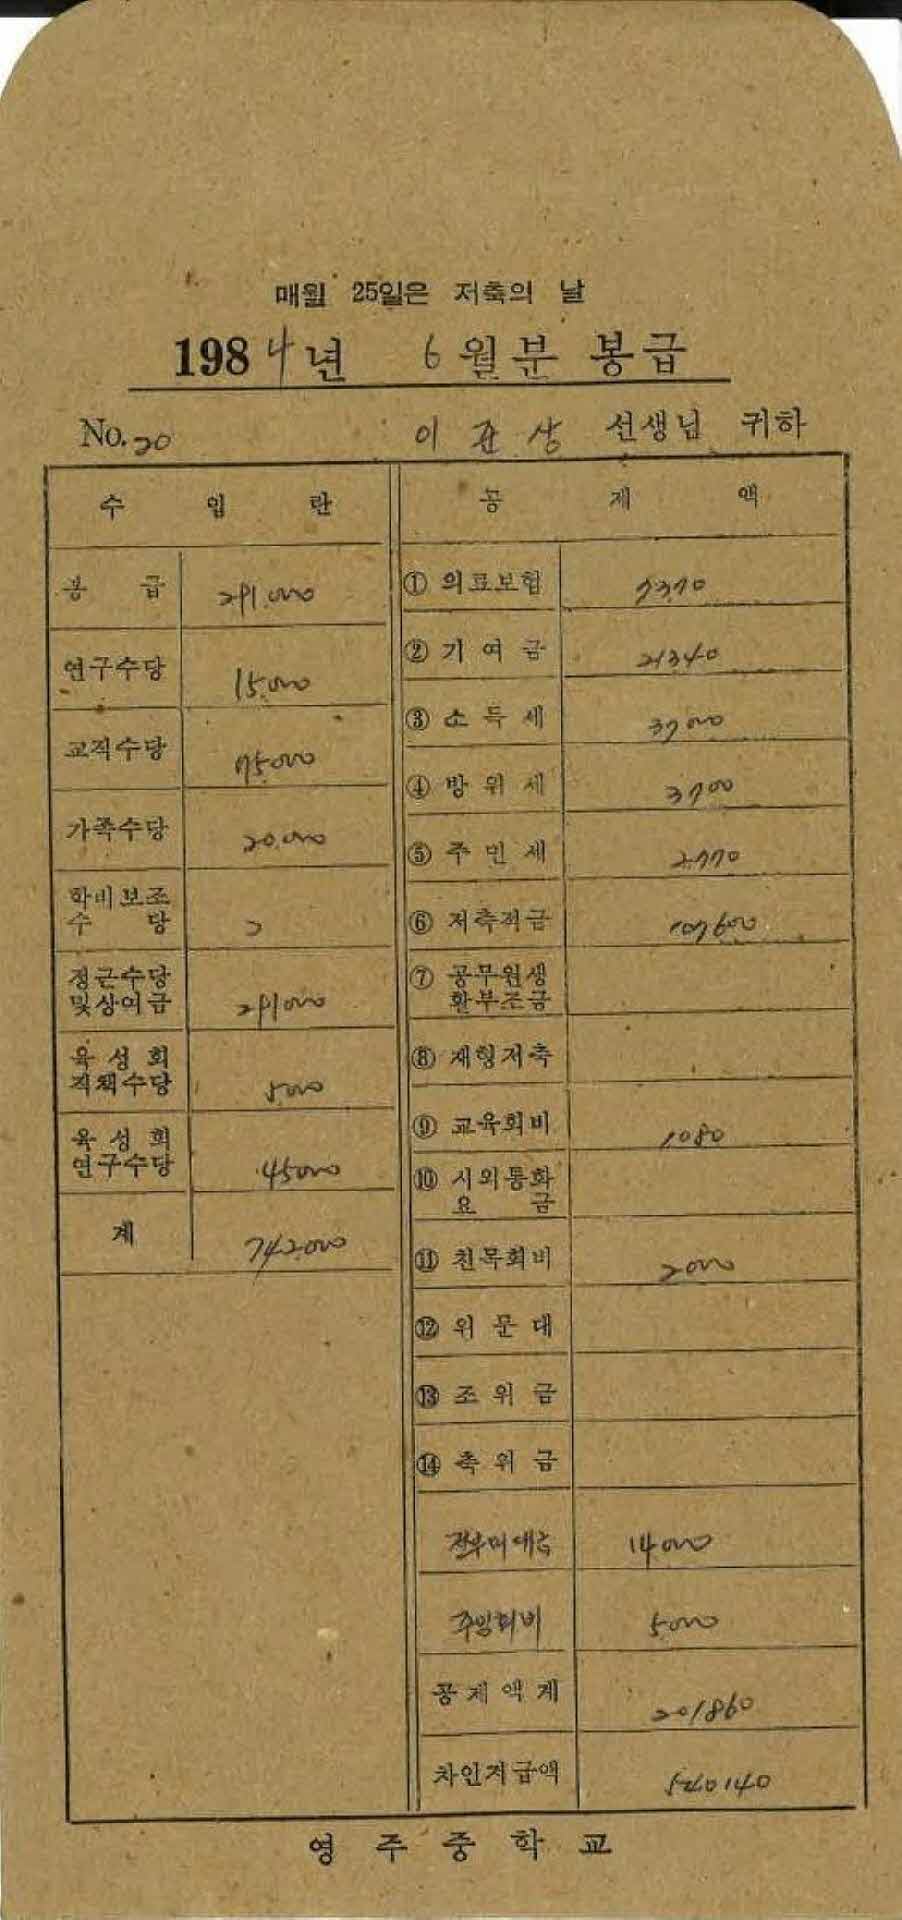 매월 25일은 저축의 날
1984년 6월분 봉급
No. 20 이준상 선생님 귀하
수 입 란
봉 급 291,000
연구수당 15,000
교직수당 75,000
가족수당 20,000
학비보조
수 당
정근수당
및상여금 291000
육성회
직책수당 5,000
육성회
연구수당 45000
계 742,000
공 제 액
① 의료보험 7370
② 기여금 21340
③ 소득세 37000
④ 방위세 3700
⑤ 주민세 2770
⑥ 저축적금 107600
⑦ 공무원생
활부조금
⑧ 재형저축
⑨ 교육회비 1080
⑩ 시외통화
요 금
⑪ 친목회비 2000
⑫ 위문대
⑬ 조위금
⑭ 축위금
14000
주임회비 5000
공제액계 201860
차인지급액 540140
영주중학교